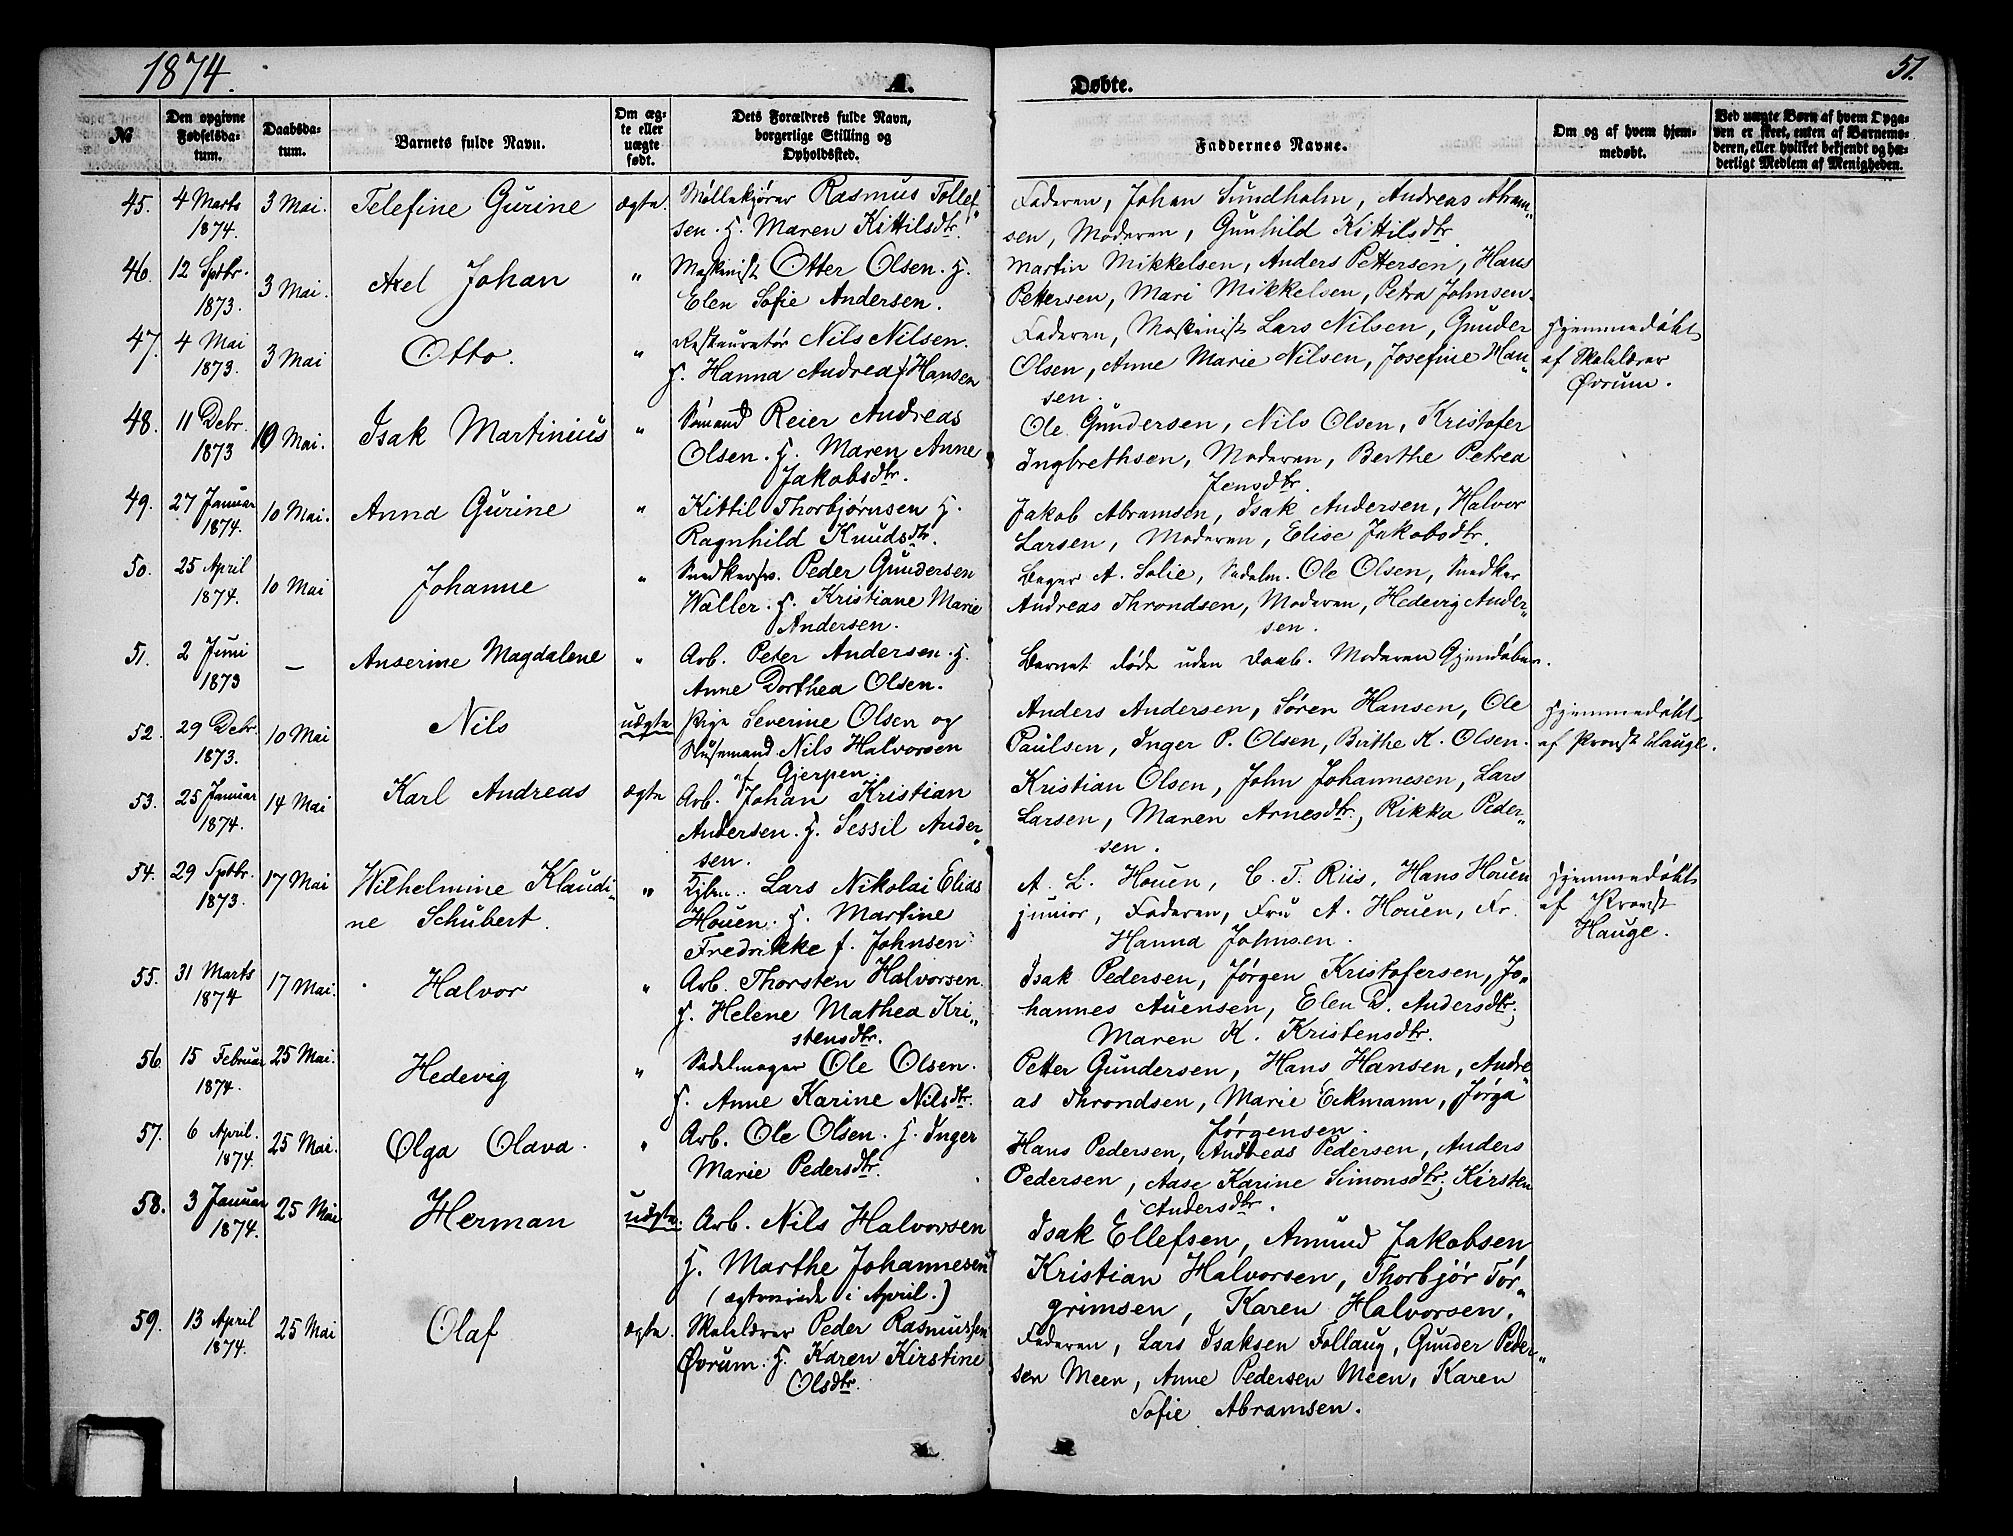 1874.
A.
Døbte.
51.
№
Den opgivne Fødselsdatum.
Daabsdatum.
Barnets fulde Navn.
Om ægte eller uægte født.
Dets Forældres fulde Navn, borgerlige Stilling og Opholdssted.
Faddernes Navne.
Om og af hvem hjemmedøbt.
Ved uægte Børn af hvem Opgaven er skeet, enten af Barnemoderen, eller hvilket bekjendt og hæderligt Medlem af Menigheden.
45. 4 Marts 1874. 3 Mai. Telefine Gurine ægte. Møllekjører Rasmus Tollef-
sen. H. Maren Kittilsdtr.
Faderen, Johan Sundholm, Andreas Abram-
sen, Moderen, Gunhild Kittilsdtr.
46. 12 Sptbr. 1873. 3 Mai. Axel Johan " Maskinist Otter Olsen. H.
Elen Sofie Andersen.
Martin Mikkelsen, Anders Pettersen, Hans
Pettersen, Mari Mikkelsen, Petra Johnsen.
47. 4 Mai 1873. 3 Mai Otto. " Restauratør Nils Nilsen.
H. Hanna Andrea f. Hansen
Faderen, Maskinist Lars Nilsen, Gunder
Olsen, Anne Marie Nilsen, Josefine Han-
sen.
Hjemmedøbt
af Skolelærer
Øvrum.
48. 11 Debr. 1873 10 Mai. Isak Martinius " Sømand Reier Andreas
Olsen. H. Maren Anne
Jakobsdtr.
Ole Gundersen, Nils Olsen, Kristofer
Ingbrethsen, Moderen, Berthe Petrea
Jensdtr.
49. 27 Januar 1874. 10 Mai. Anna Gurine " Kittil Thorbjørnsen H.
Ragnhild Knudsdtr.
Jakob Abramsen, Isak Andersen, Halvor
Larsen, Moderen, Elise Jakobsdtr.
50. 25 April 1874. 10 Mai Johanne " Snedkersv. Peder Gundersen
Waller. H. Kristiane Marie
Andersen.
Bager A. Solie, Sadelm. Ole Olsen, Snedker
Andreas Throndsen, Moderen, Hedevig Ander-
sen.
51. 2 Juni 1873 – Anserine Magdalene " Arb. Peter Andersen. H.
Anne Dorthea Olsen.
Barnet døde uden Daab. Moderen
52. 29 Debr. 1873. 10 Mai Nils uægte Pige Severine Olsen og
Husemand Nils Halvorsen
af Gjerpen.
Anders Andersen, Søren Hansen, Ole
Paulsen, Inger P. Olsen, Birthe K. Olsen.
Hjemmedøbt
af Provst Hauge.
53. 25 Januar 1874. 14 Mai Karl Andreas ægte Arb. Johan Kristian
Andersen. H. Sessil Ander-
sen.
Kristian Olsen, John Johannesen, Lars
Larsen, Maren Arnesdtr, Rikka Peder-
sen.
54. 29 Sptbr. 1873. 17 Mai Wilhelmine Klaudi-
ne Schubert. " Lars Nikolai Elias
Houen. H. Martine
Fredrikke f. Johnsen
A. L. Houen, C. T. Riis, Hans Houen
junior, Faderen, Fru A. Houen, Fr.
Hanna Johnsen.
Hjemmedøbt
af Provst
Hauge.
55. 31 Marts 1874 17 Mai. Halvor " Arb. Thorsten Halvorsen.
H. Helene Mathea Kri-
stensdtr.
Isak Pedersen, Jørgen Kristofersen, Jo-
hannes Auensen, Elen D. Andersdtr,
Maren K. Kristensdtr.
56. 15 Februar 1874. 25 Mai. Hedevig " Sadelmager Ole Olsen.
H. Anne Karine Nilsdtr.
Petter Gundersen, Hans Hansen, Andre-
as Throndsen, Marie Eckmann, Jørga
Jørgensen.
57. 6 April. 1874. 25 Mai. Olga Olava. " Arb. Ole Olsen. H. Inger
Marie Pedersdtr.
Hans Pedersen, Andreas Pedersen, Anders
Pedersen, Aase Karine Simonsdtr, Kirsten
Andersdtr.
58. 3 Januar 1874. 25 Mai Herman uægte. Arb. Nils Halvorsen
H. Marthe Johannesen
(ægteviede i April.)
Isak Ellefsen, Amund Jakobsen,
Kristian Halvorsen, Thorbjør Tor-
grimsen, Karen Halvorsen.
59. 13 April 1874. 25 Mai Olaf ægte. Skolelærer Peder Rasmussen
Øvrum. H. Karen Kirstine
Olsdtr.
Faderen, Lars Isaksen Follaug, Gunder Peder-
sen Meen, Anne Pedersen Meen, Karen
Sofie Abramsen.